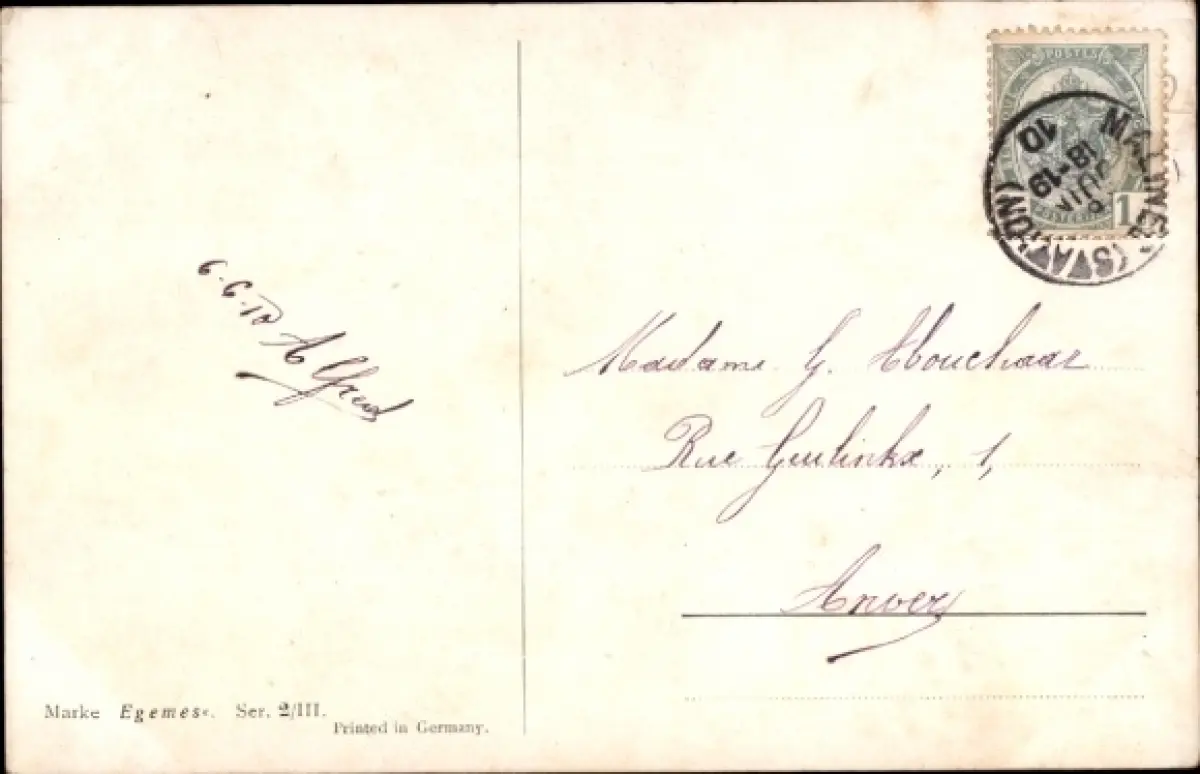 6.6.10 Alfred
POSTES
1
MALINES (STATION)
6
JUIN
18-19
10
Madame G. Abouchaar
Rue Geulinkx, 1,
Anvers
Marke Egemes. Ser. 2/III.
Printed in Germany.